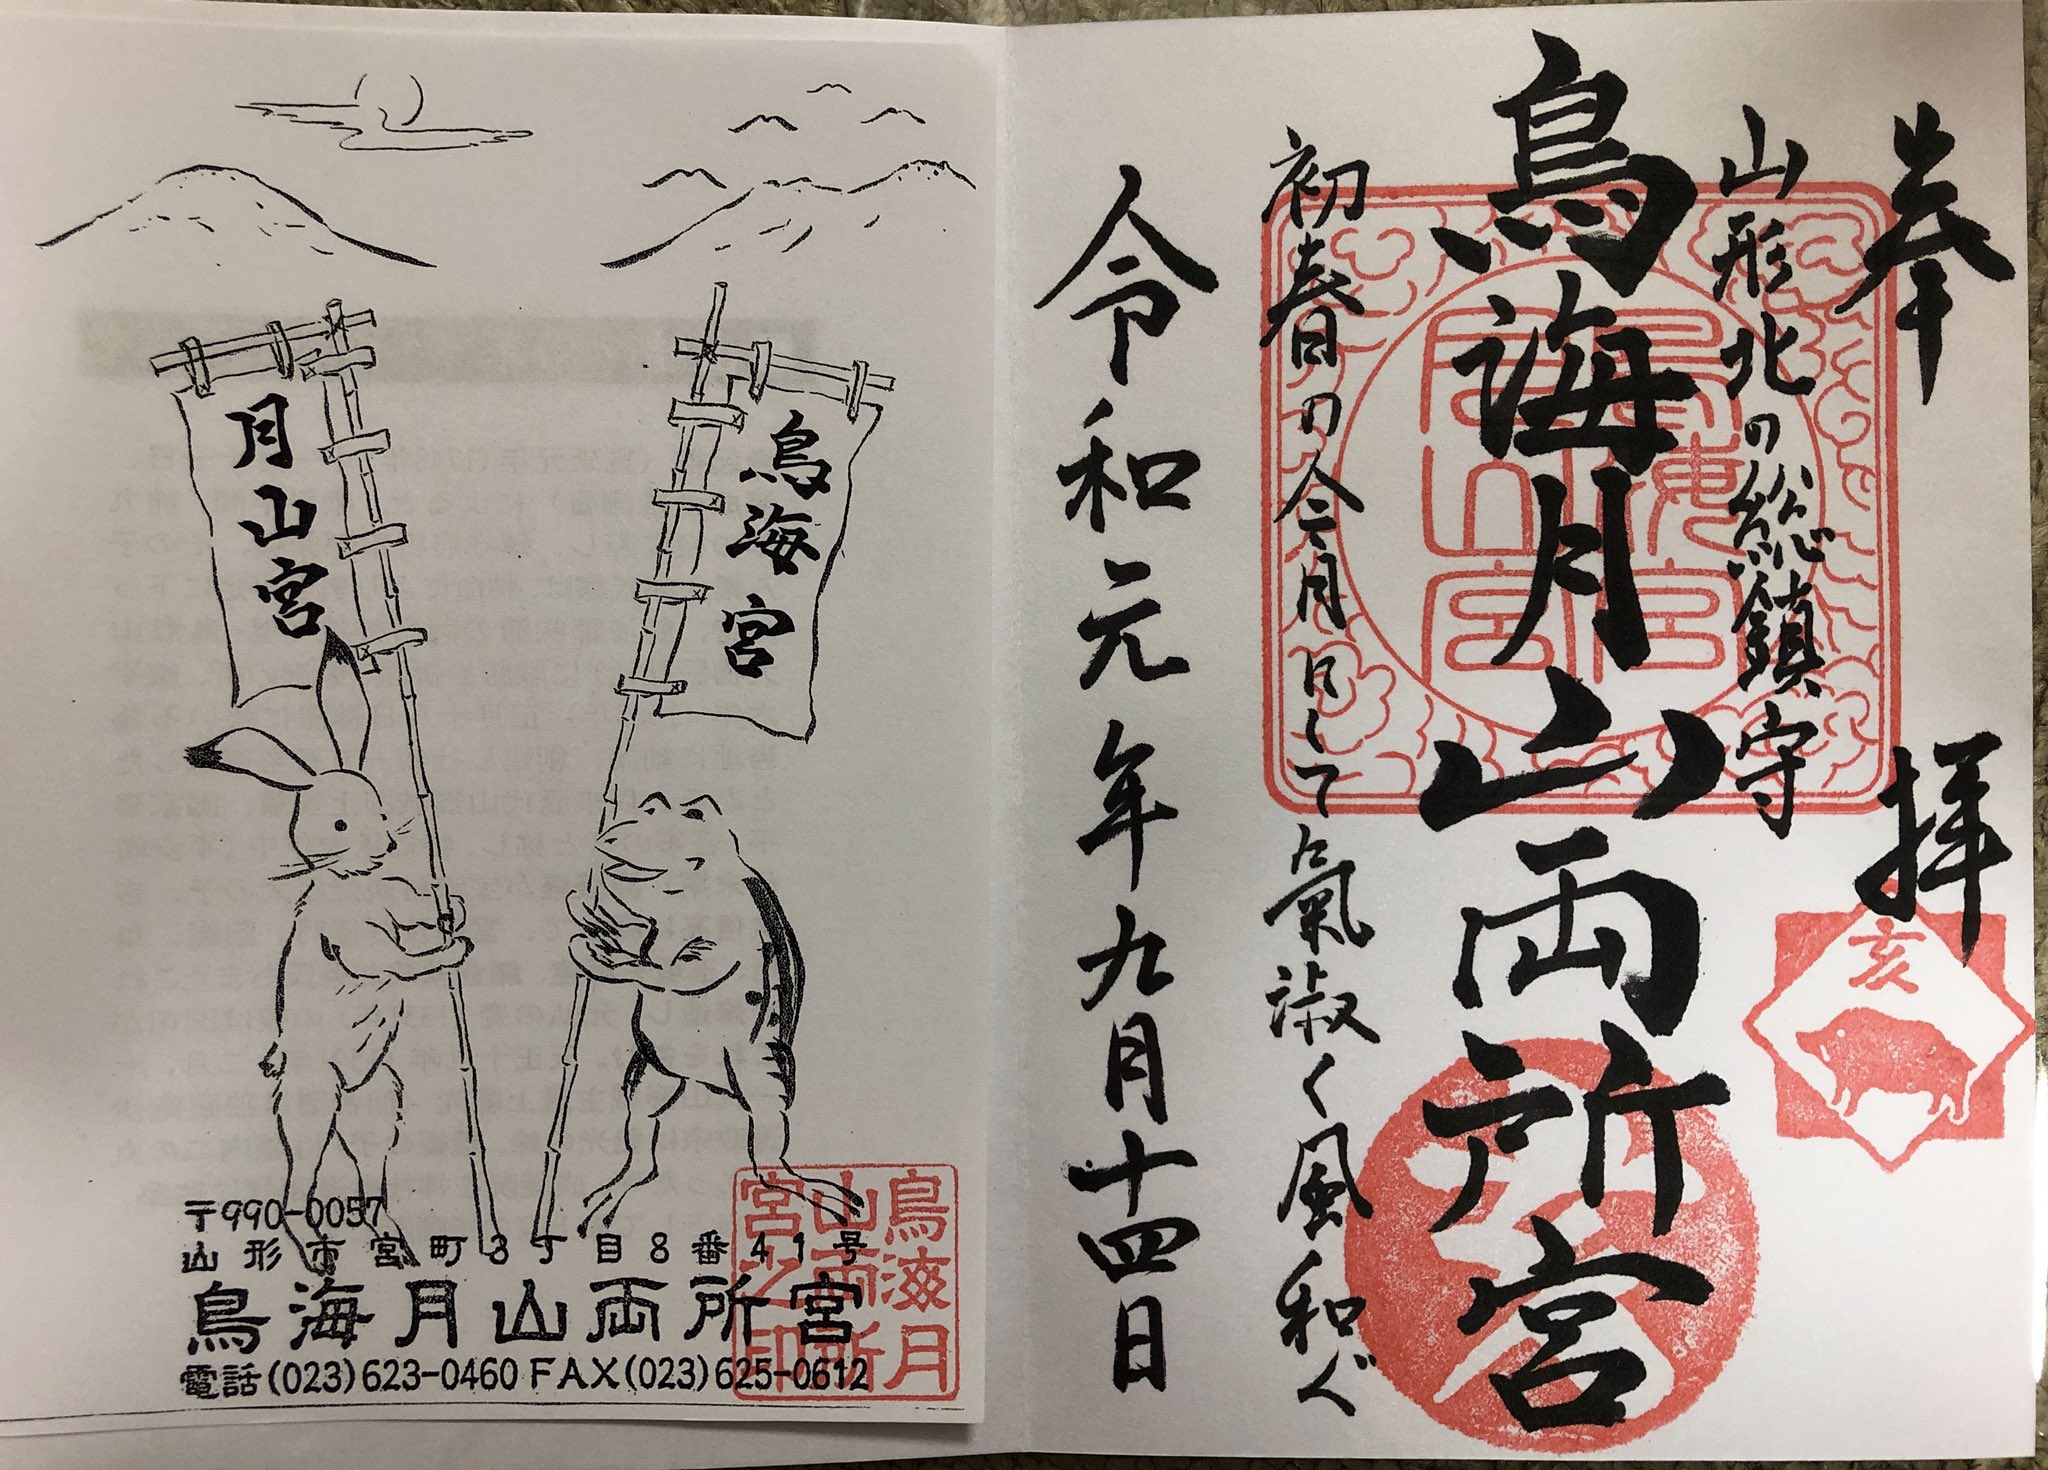 奉拝
山形北の総鎮守
鳥海月山両所宮
初春の令月にして氣淑く風和ぐ
令和元年九月十四日
亥
鳥海月山宮
鳥海宮
月山宮
〒990-0057
山形市宮町3丁目8番41号
鳥海月山両所宮
電話(023)623-0460 FAX(023)625-0612
鳥海月
山両所
宮之印